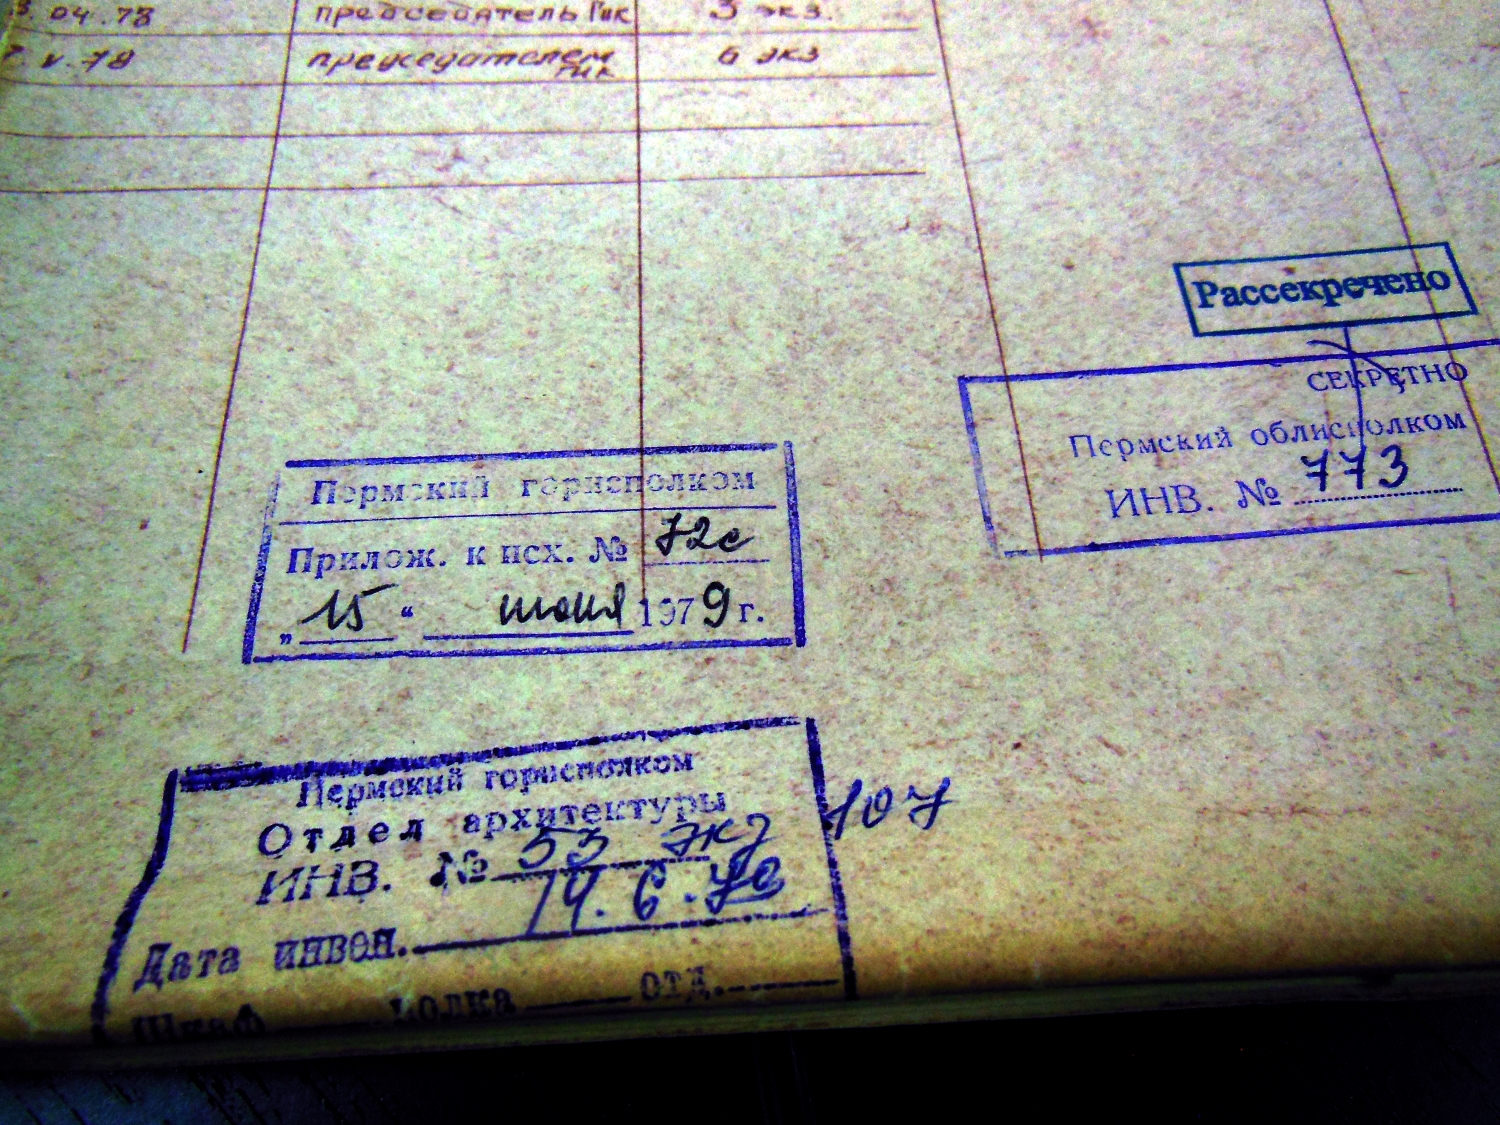 04.78 председатель Гик 3 экз.
v.78 председателем гик 6 экз
Рассекречено
СЕКРЕТНО
Пермский облисполком
ИНВ. № 773
Пермский горисполком
Прилож. к исх. № 72с
„ 15 “ июня 1979 г.
Пермский горисполком
Отдел архитектуры
ИНВ. № 53 экз 107
Дата инвен. 14.6.
Шкаф полка отд.